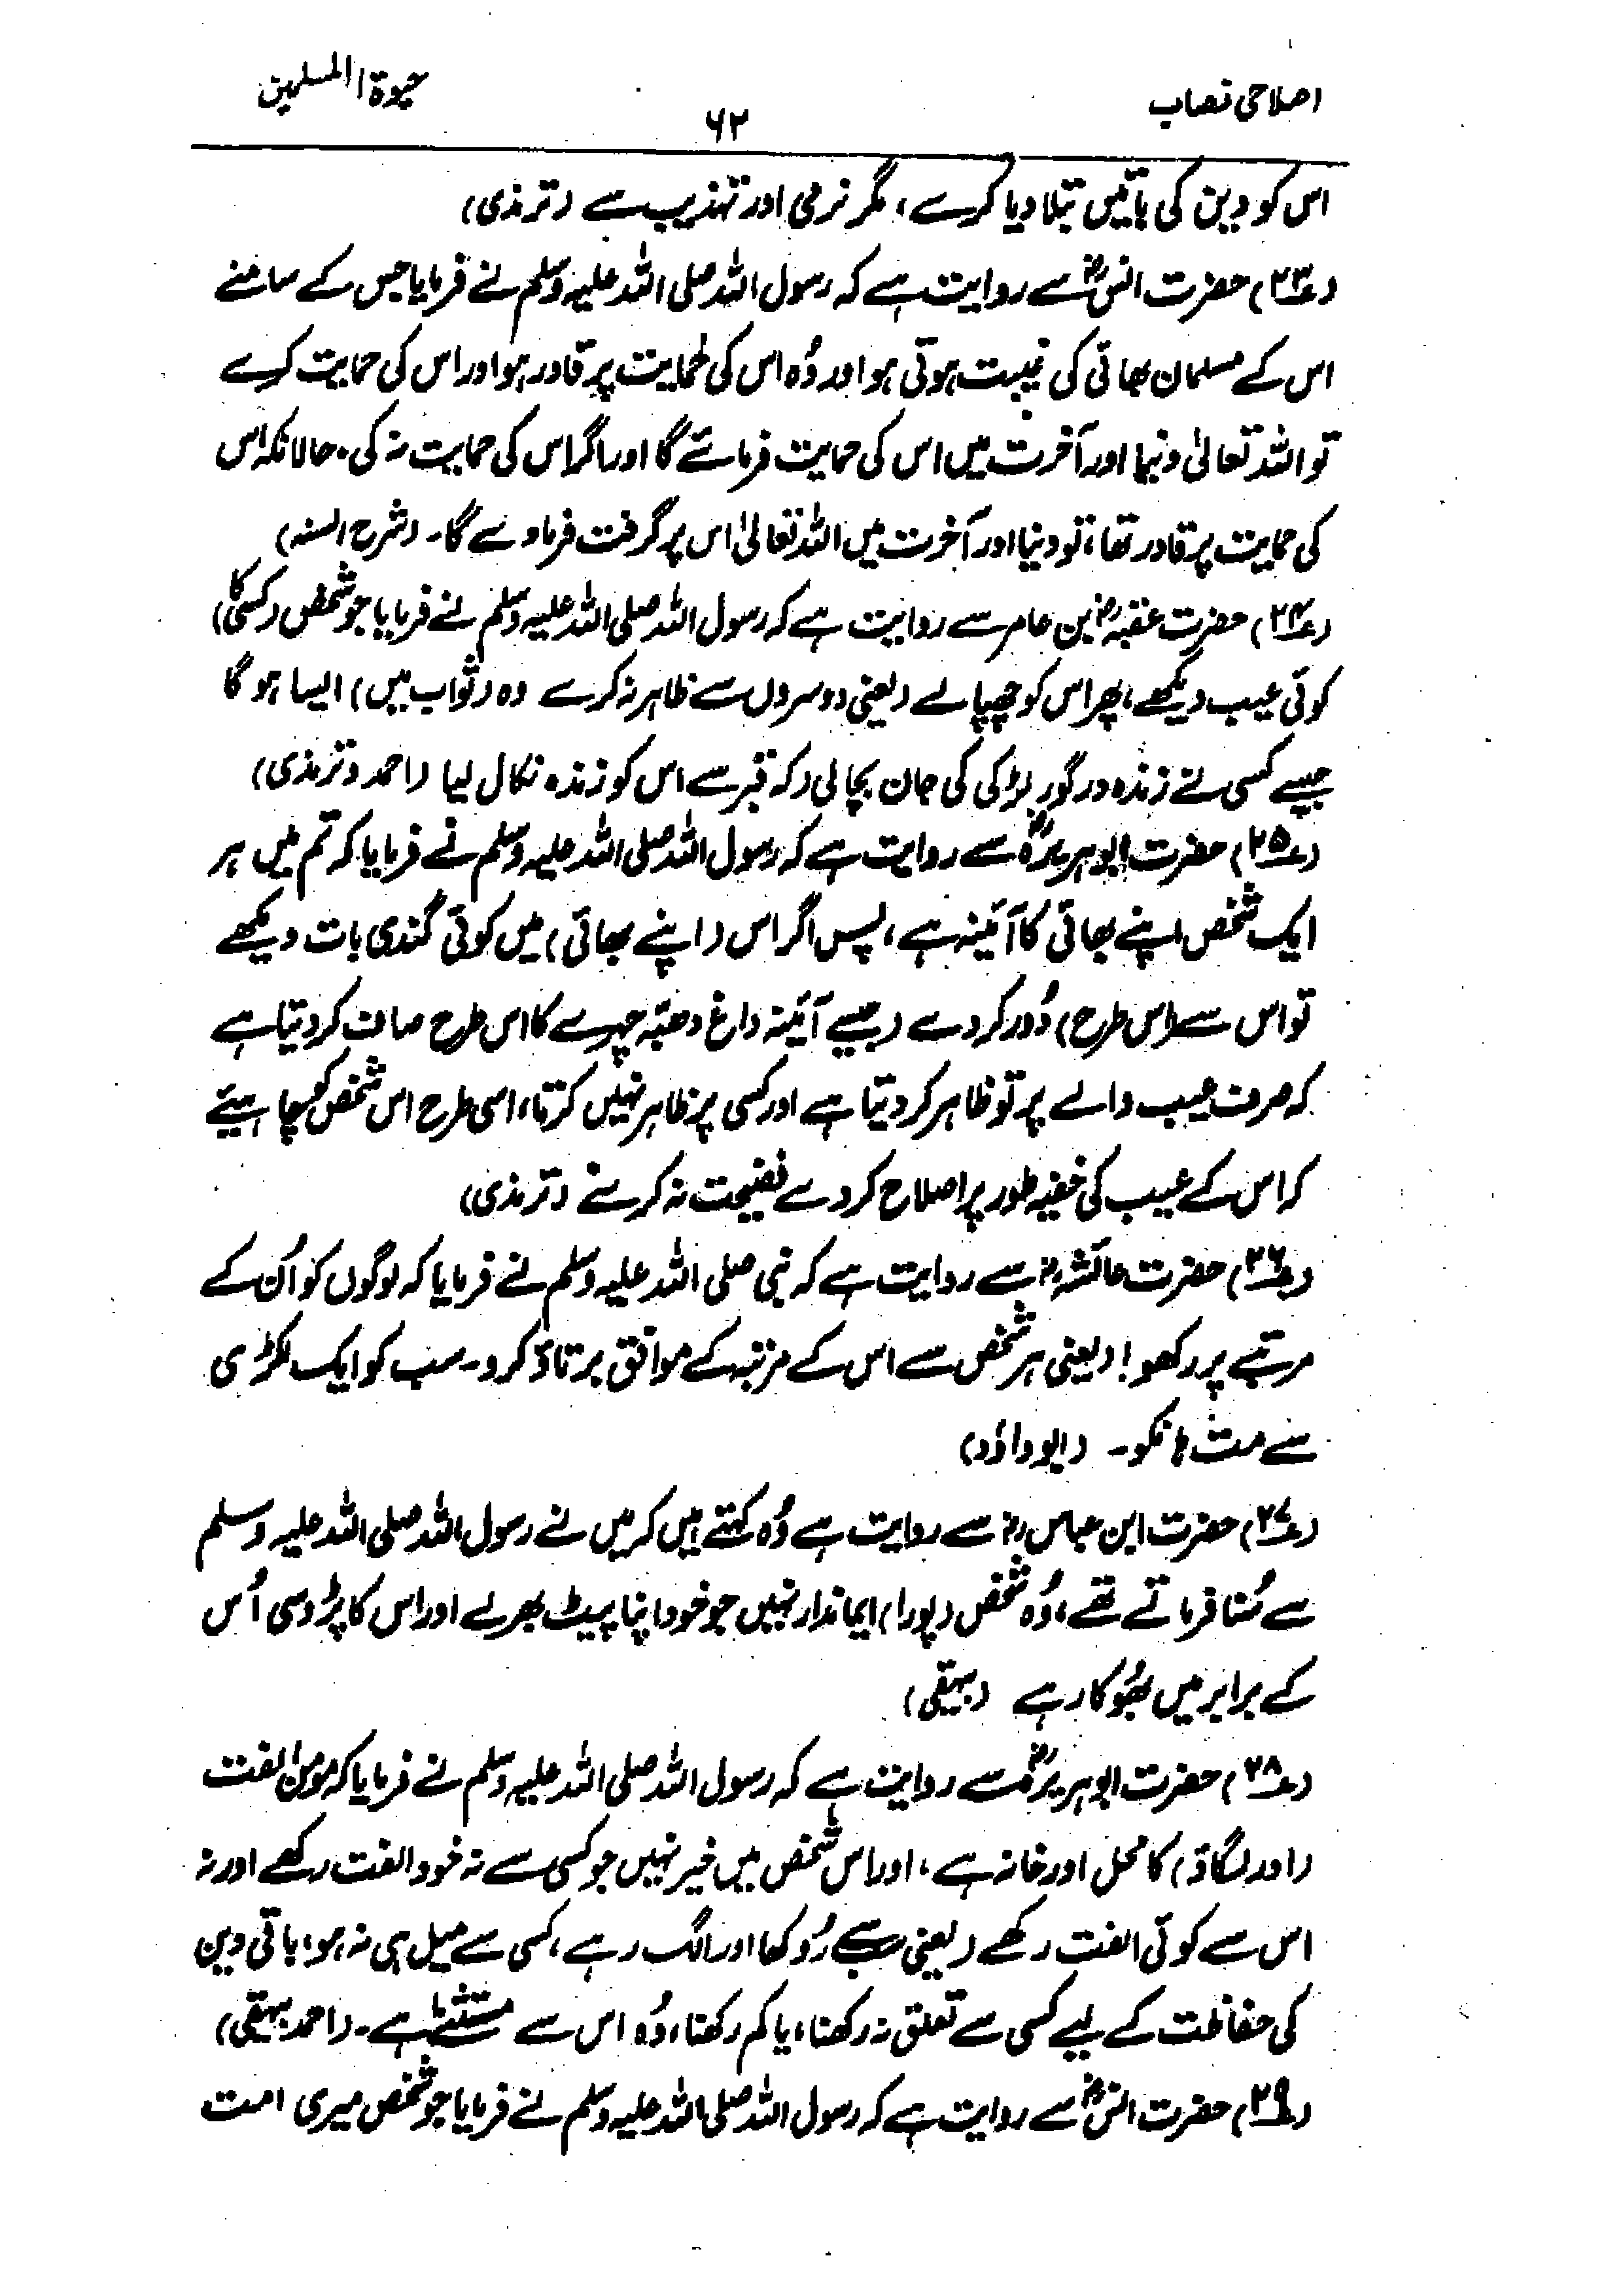 اصلاحی نصاب
۶۲
حیٰوۃ المسلمین
اس کو دین کی باتیں بتلا دیا کرے، مگر نرمی اور تہذیب سے (ترمذی)
(ع۲۳) حضرت انسؓ سے روایت ہے کہ رسول اللہ صلی اللہ علیہ وسلم نے فرمایا جس کے سامنے
اس کے مسلمان بھائی کی غیبت ہوتی ہو اور وُہ اس کی حمایت پر قادر ہو اور اس کی حمایت کرے
تو اللہ تعالیٰ دنیا اور آخرت میں اس کی حمایت فرمائے گا اور اگر اس کی حمایت نہ کی۔ حالانکہ اس
کی حمایت پر قادر تھا، تو دنیا اور آخرت میں اللہ تعالیٰ اس پر گرفت فرماوے گا۔ (شرح السنہ)
(ع۲۴) حضرت عقبہؓ بن عامر سے روایت ہے کہ رسول اللہ صلی اللہ علیہ وسلم نے فرمایا جو شخص (کسی کا)
کوئی عیب دیکھے، پھر اس کو چھپالے (یعنی دوسروں سے ظاہر نہ کرے وہ (ثواب میں) ایسا ہو گا
جیسے کسی نے زندہ درگور لڑکی کی جان بچالی (کہ قبر سے اس کو زندہ نکال لیا (احمد و ترمذی)
(ع۲۵) حضرت ابوہریرہؓ سے روایت ہے کہ رسول اللہ صلی اللہ علیہ وسلم نے فرمایا کہ تم میں ہر
ایک شخص اپنے بھائی کا آئینہ ہے، پس اگر اس (اپنے بھائی) میں کوئی گندی بات دیکھے
تو اس سے (اس طرح) دُور کر دے (جیسے آئینہ داغ دھبّہ چہرے کا اس طرح صاف کر دیتا ہے
کہ صرف عیب والے پر تو ظاہر کر دیتا ہے اور کسی پر ظاہر نہیں کرتا، اسی طرح اس شخص کو چاہیئے
کہ اس کے عیب کی خفیہ طور پر اصلاح کر دے فضیحت نہ کرے (ترمذی)
(ع۲۶) حضرت عائشہؓ سے روایت ہے کہ نبی صلی اللہ علیہ وسلم نے فرمایا کہ لوگوں کو اُن کے
مرتبے پر رکھو! (یعنی ہر شخص سے اس کے مرتبہ کے موافق برتاؤ کرو۔ سب کو ایک لکڑی
سے مت ہانکو۔ (ابوداؤد)
(ع۲۷) حضرت ابن عباسؓ سے روایت ہے وُہ کہتے ہیں کہ میں نے رسول اللہ صلی اللہ علیہ وسلم
سے سُنا فرماتے تھے، وُہ شخص (پورا) ایماندار نہیں جو خود اپنا پیٹ بھر لے اور اس کا پڑوسی اُس
کے برابر میں بھُوکا رہے (بیہقی)
(ع۲۸) حضرت ابوہریرہؓ سے روایت ہے کہ رسول اللہ صلی اللہ علیہ وسلم نے فرمایا کہ مومن الفت
(اور لگاؤ) کا محل اور خانہ ہے، اور اس شخص میں خیر نہیں جو کسی سے نہ خود الفت رکھے اور نہ
اس سے کوئی الفت رکھے (یعنی سب سے رُوکھا اور الگ رہے، کسی سے میل ہی نہ ہو، باقی دین
کی حفاظت کے لیے کسی سے تعلق نہ رکھنا، یا کم رکھنا، وُہ اس سے مستثنےٰ ہے۔ (احمد بیہقی)
(ع۲۹) حضرت انسؓ سے روایت ہے کہ رسول اللہ صلی اللہ علیہ وسلم نے فرمایا جو شخص میری امت